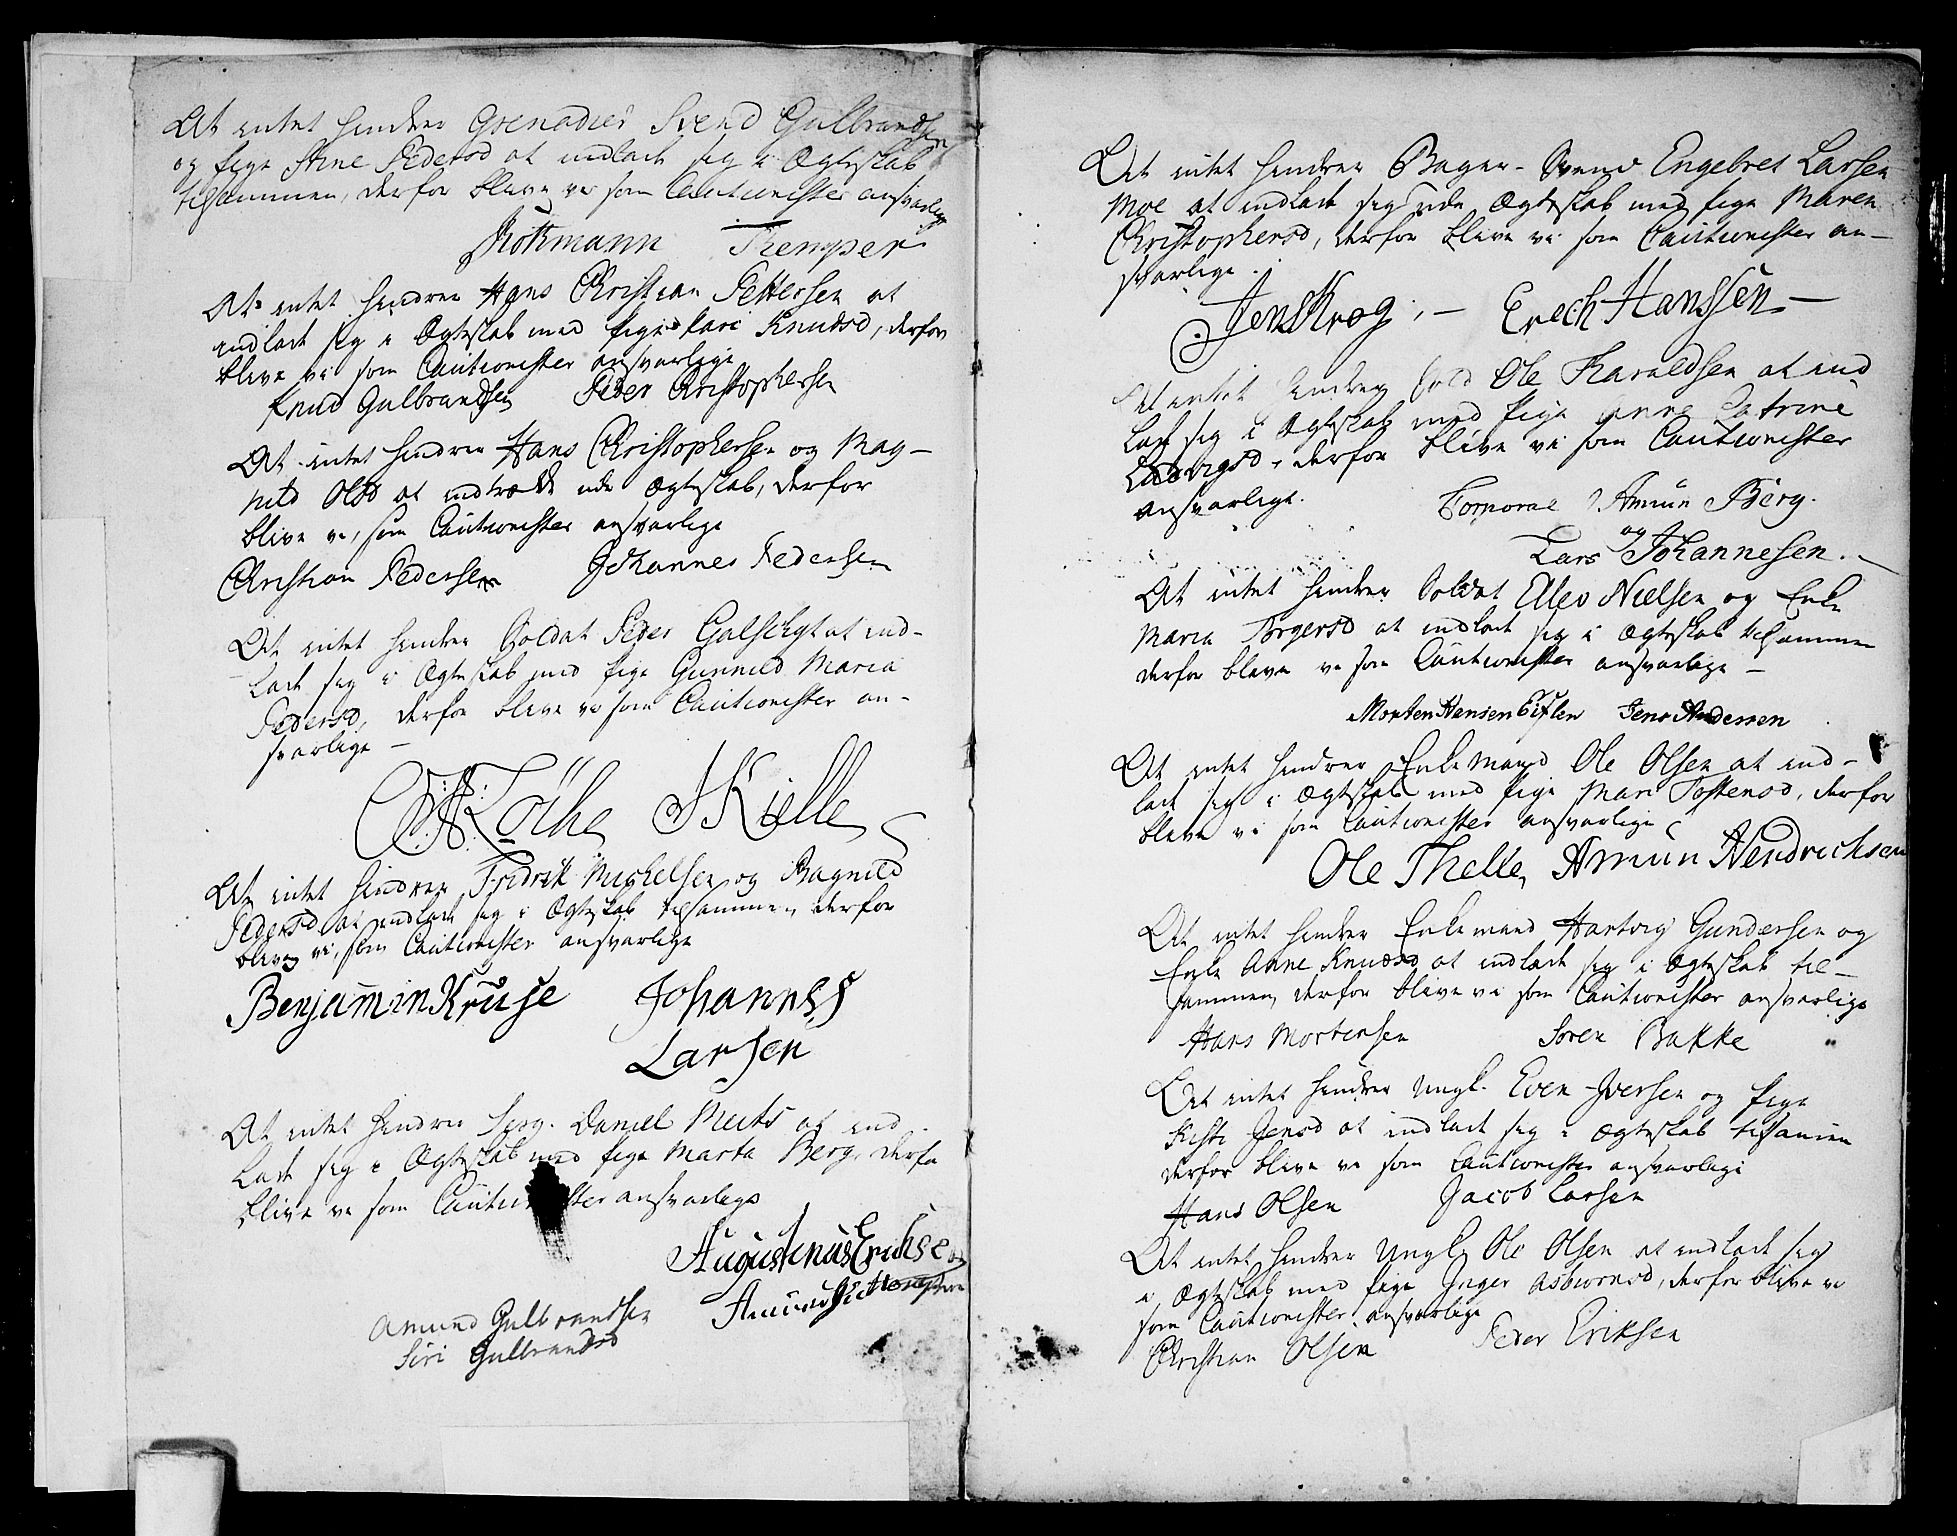 At intet hindrer Grenadier Svend Gulbrandsen
og Pige Stine Pedersd at indlade sig i Ægteskab
tilsammen, derfor blive vi som Cautionister ansvarlige
Rothmann Kemper
At intet hindrer Hans Christian Pettersen at
indlade sig i Ægteskab med Pige Kari Knudsd, derfor
blive vi som Cautionister ansvarlige
Knud Gulbrandsen Peder Christophersen
At intet hindrer Hans Christophersen og Mag-
nild Olsd at indtræde udi Ægteskab, derfor
blive vi, som Cautionister ansvarlige
Christian Pedersen Johannes Pedersen
At intet hindrer Soldat Peder Galschigt at ind-
lade sig i Ægteskab med Pige Gunnild Maria
Pedersd, derfor blive vi som Cautionister an-
svarlige –
J Kielle
At intet hindrer Fridrik Michelsen og Ragnild
Pedersd at indlade sig i Ægteskab tilsammen, derfor
blive vi, som Cautionister ansvarlige
Benjamin Kruse Johannes
Larsen
At intet hindrer Serg. Daniel Meits at ind-
lade sig i Ægteskab med Pige Marta Berg, derfor
blive vi som Cautionister ansvarlige
Augustinus Erichsen
Amund Gulbrandsen
Siri Gulbrandsd
At intet hindrer Bager-Svend Engebret Larsen
Moe at indlade sig udi Ægteskab med Pige Maren
Christophersd, derfor blive vi som Cautionister an-
svarlige.
Jens Krog, – Erech Hanssen –
At intet hindrer Sold Ole Haraldsen at ind
lade sig i Ægteskab med Pige Anne Catrine
Ludvigsd, derfor blive vi som Cautionister
ansvarlige. Corporal Amun Berg.
og
Lars Johannesen. –
At intet hindrer Soldat Ellev Nielsen og Enke
Maria Torgersd at indlade sig i Ægteskab tilsammen
derfor blive vi som Cautionister ansvarlige –
Morten Hensen Jens Andersen
At intet hindrer Enkemand Ole Olsen at ind-
lade sig i Ægteskab med Pige Mari Tostensd, derfor
blive vi som Cautionister ansvarlige
Ole Thelle, Amun Hendrichsen
At intet hindrer Enkemand Hartvig Gundersen og
Enke Anne Knudsd at indlade sig i Ægteskab til-
sammen, derfor blive vi som Cautionister ansvarlige
Hans Mortensen Soren Bakke
At intet hindrer Ungk. Even Iversen og Pige
Kisti Jensd at indlade sig i Ægteskab tilsamen
derfor blive vi som Cautionister ansvarlige
Hans Olsen Jacob Larsen
At intet hindrer Ungk Ole Olsen at indlade sig
i Ægteskab med Pige Inger Asbiornsd, derfor blive vi
som Cautionister ansvarlige
Christian Olsen Peder Eriksen